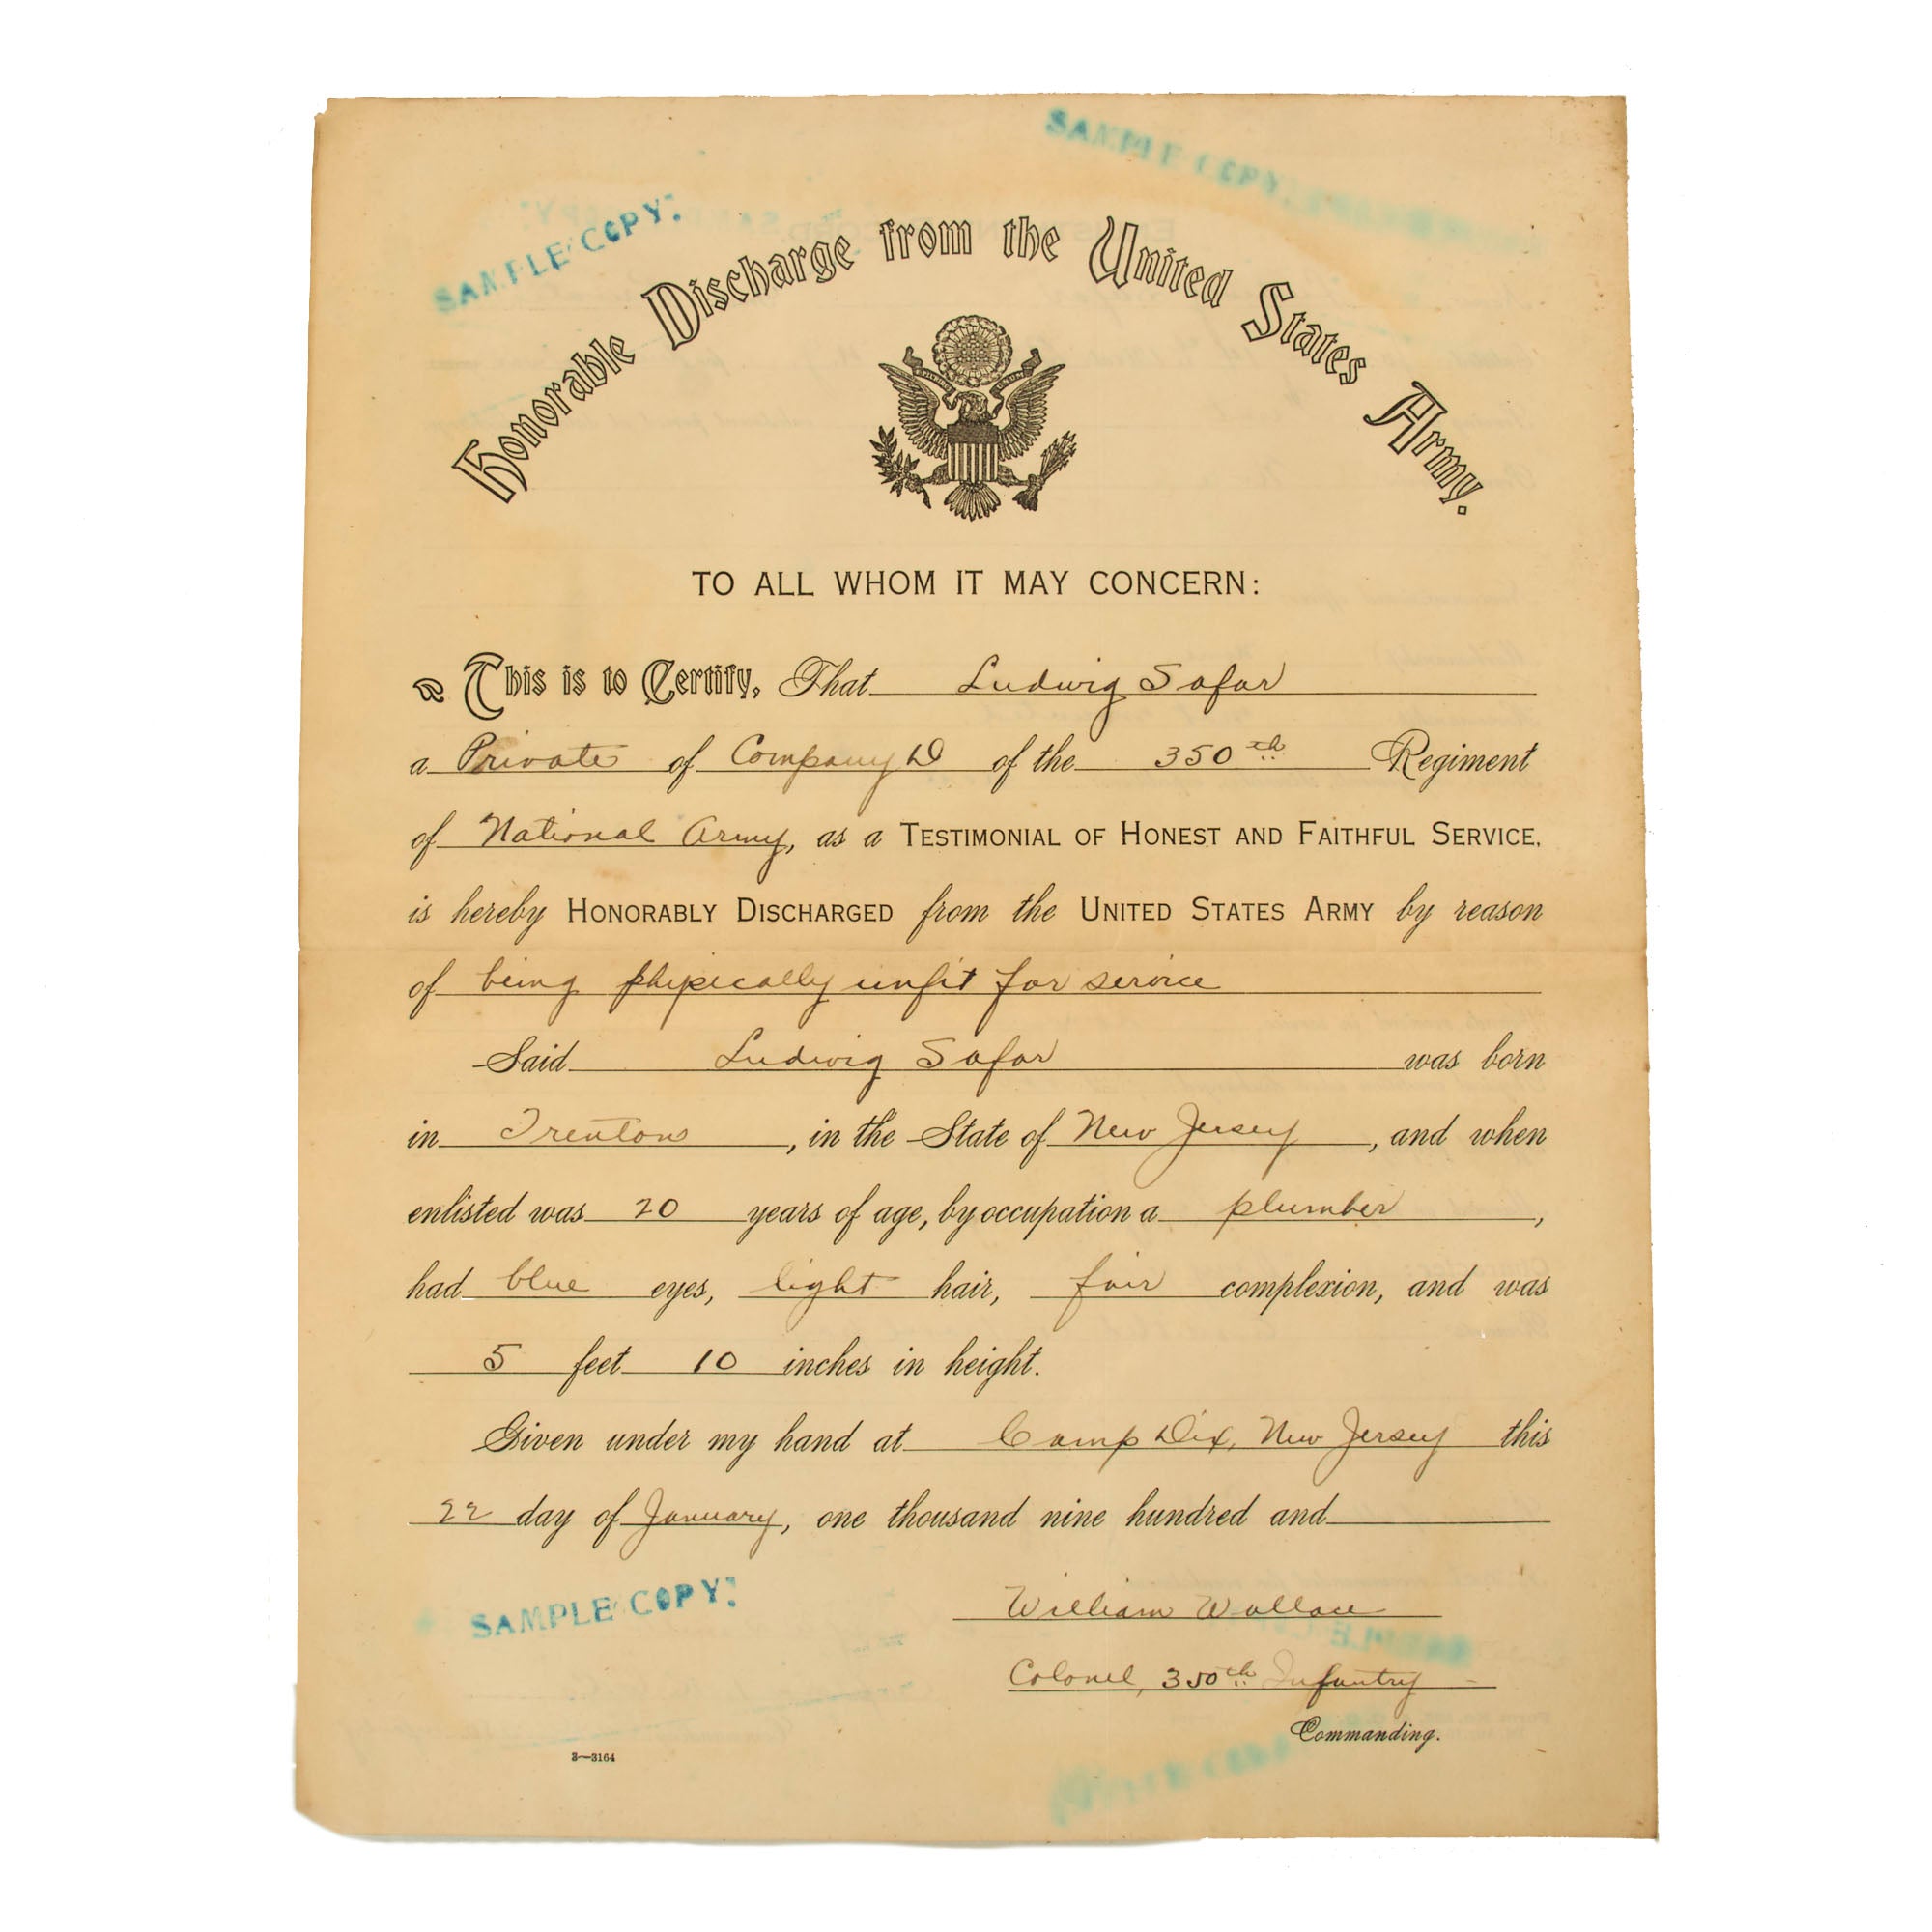 SAMPLE COPY.
SAMPLE COPY.
Honorable Discharge from the United States Army.
TO ALL WHOM IT MAY CONCERN:
This is to Certify, That Ludwig Safar
a Private of Company D of the 350th Regiment
of National Army, as a TESTIMONIAL OF HONEST AND FAITHFUL SERVICE,
is hereby HONORABLY DISCHARGED from the UNITED STATES ARMY by reason
of being physically unfit for service
Said Ludwig Safar was born
in Trenton, in the State of New Jersey, and when
enlisted was 20 years of age, by occupation a plumber,
had blue eyes, light hair, fair complexion, and was
5 feet 10 inches in height.
Given under my hand at Camp Dix, New Jersey this
22 day of January, one thousand nine hundred and
SAMPLE COPY.
William Wallace
Colonel, 350th Infantry
Commanding.
3—3164